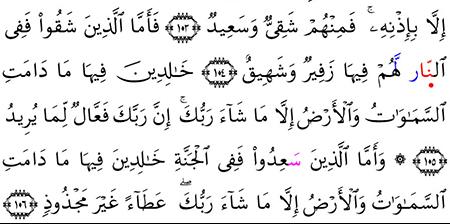 إِلَّا بِإِذْنِهِۦۚ فَمِنْهُمْ شَقِىٌّ وَسَعِيدٌ ﴿١٠٣﴾ فَأَمَّا الَّذِينَ شَقُوا۟ فَفِى
النَّارِ لَهُمْ فِيهَا زَفِيرٌ وَشَهِيقٌ ﴿١٥٤﴾ خَـٰلِدِينَ فِيهَا مَا دَامَتِ
السَّمَـٰوَٰتُ وَالْأَرْضُ إِلَّا مَا شَآءَ رَبُّكَۚ إِنَّ رَبَّكَ فَعَّالٌ لِّمَا يُرِيدُ
﴿١٥٥﴾ ۞ وَأَمَّا الَّذِينَ سَعِدُوا۟ فَفِى الْجَنَّةِ خَـٰلِدِينَ فِيهَا مَا دَامَتِ
السَّمَـٰوَٰتُ وَالْأَرْضُ إِلَّا مَا شَآءَ رَبُّكَۖ عَطَآءً غَيْرَ مَجْذُوذٍ ﴿١٠٦﴾